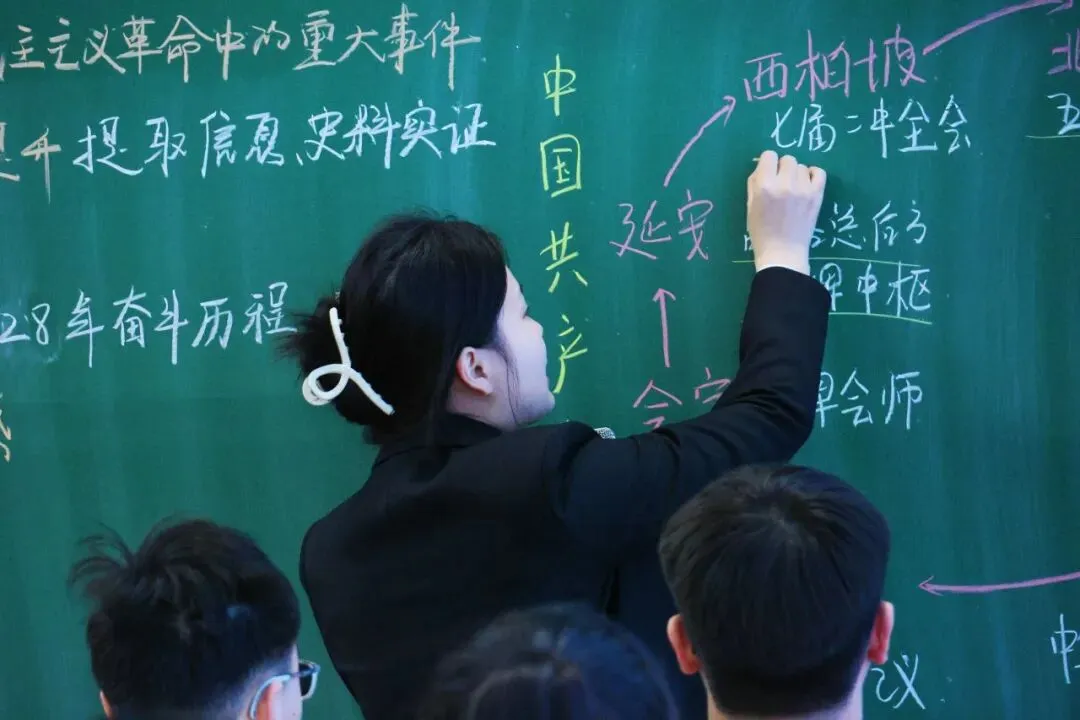 主主义革命中的重大事件
提升 提取信息、史料实证
28年奋斗历程
中国共产
西柏坡
七届二中全会
延安
总后方
中枢
会宁
会师
北
五
议